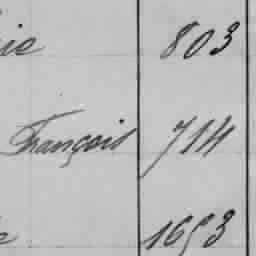 803
François 714
1653